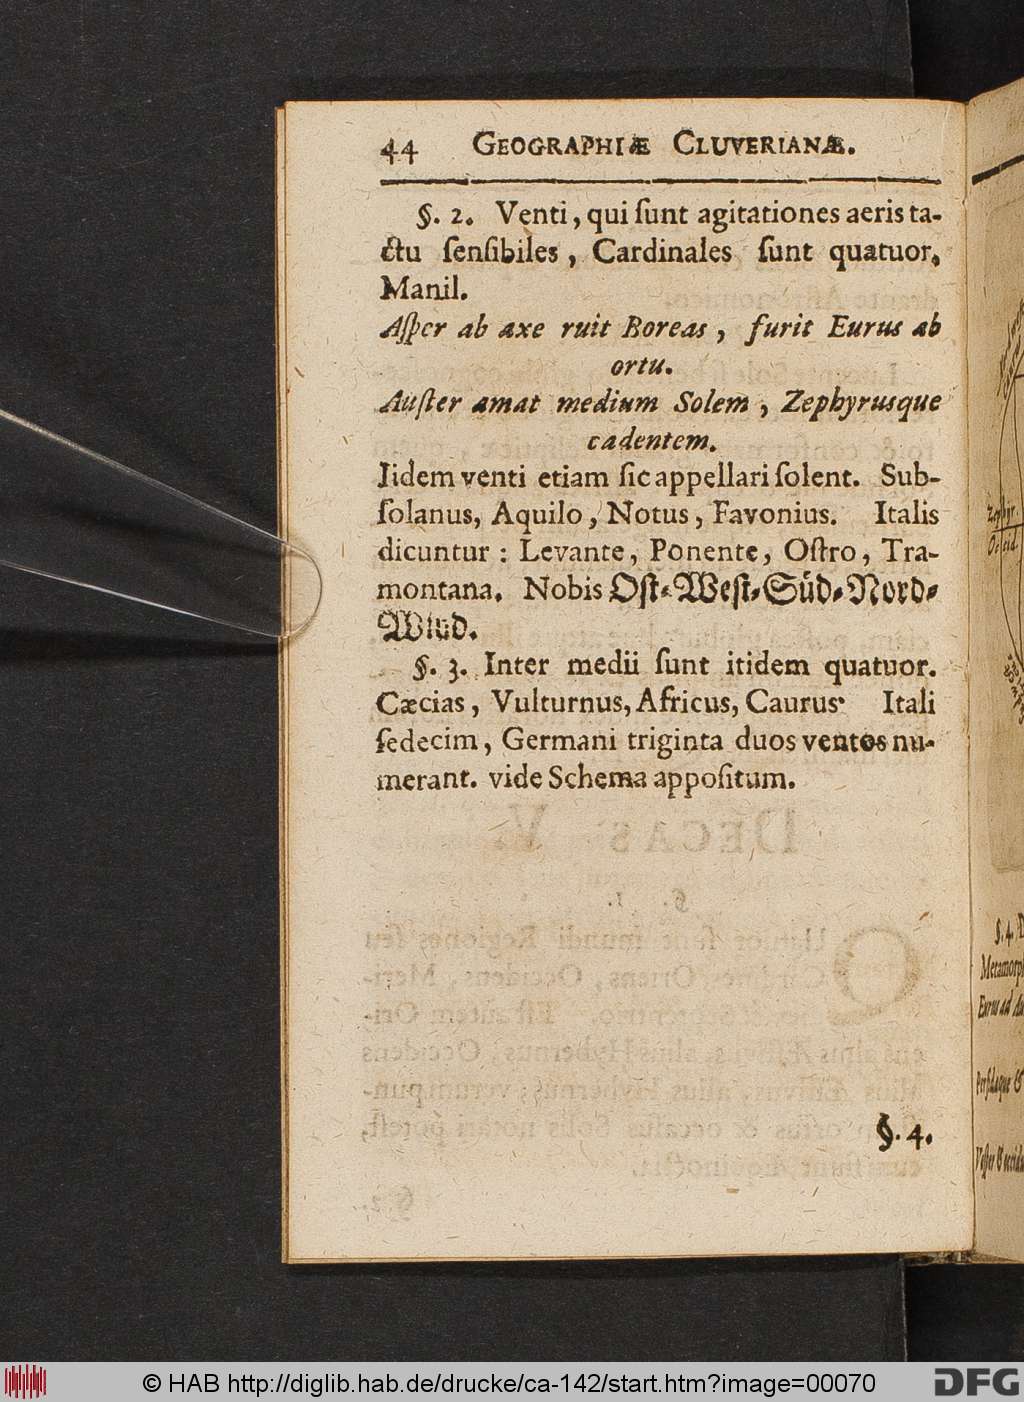 44 GEOGRAPHIÆ CLUVERIANÆ.
§. 2. Venti, qui ſunt agitationes aeris ta-
ctu ſenſibiles, Cardinales ſunt quatuor,
Manil.
Aſper ab axe ruit Boreas, furit Eurus ab
ortu.
Auſter amat medium Solem, Zephyrusque
cadentem.
Iidem venti etiam ſic appellari ſolent. Sub-
ſolanus, Aquilo, Notus, Favonius. Italis
dicuntur: Levante, Ponente, Oſtro, Tra-
montana. Nobis Oſt-Weſt-Süd-Nord-
Wind.
§. 3. Inter medii ſunt itidem quatuor.
Cæcias, Vulturnus, Africus, Caurus· Itali
ſedecim, Germani triginta duos ventos nu-
merant. vide Schema appoſitum.
§. 4.
Zephyr.
Occid.
§. 4.
Eurus ad
Perſidaque &
© HAB http://diglib.hab.de/drucke/ca-142/start.htm?image=00070
DFG